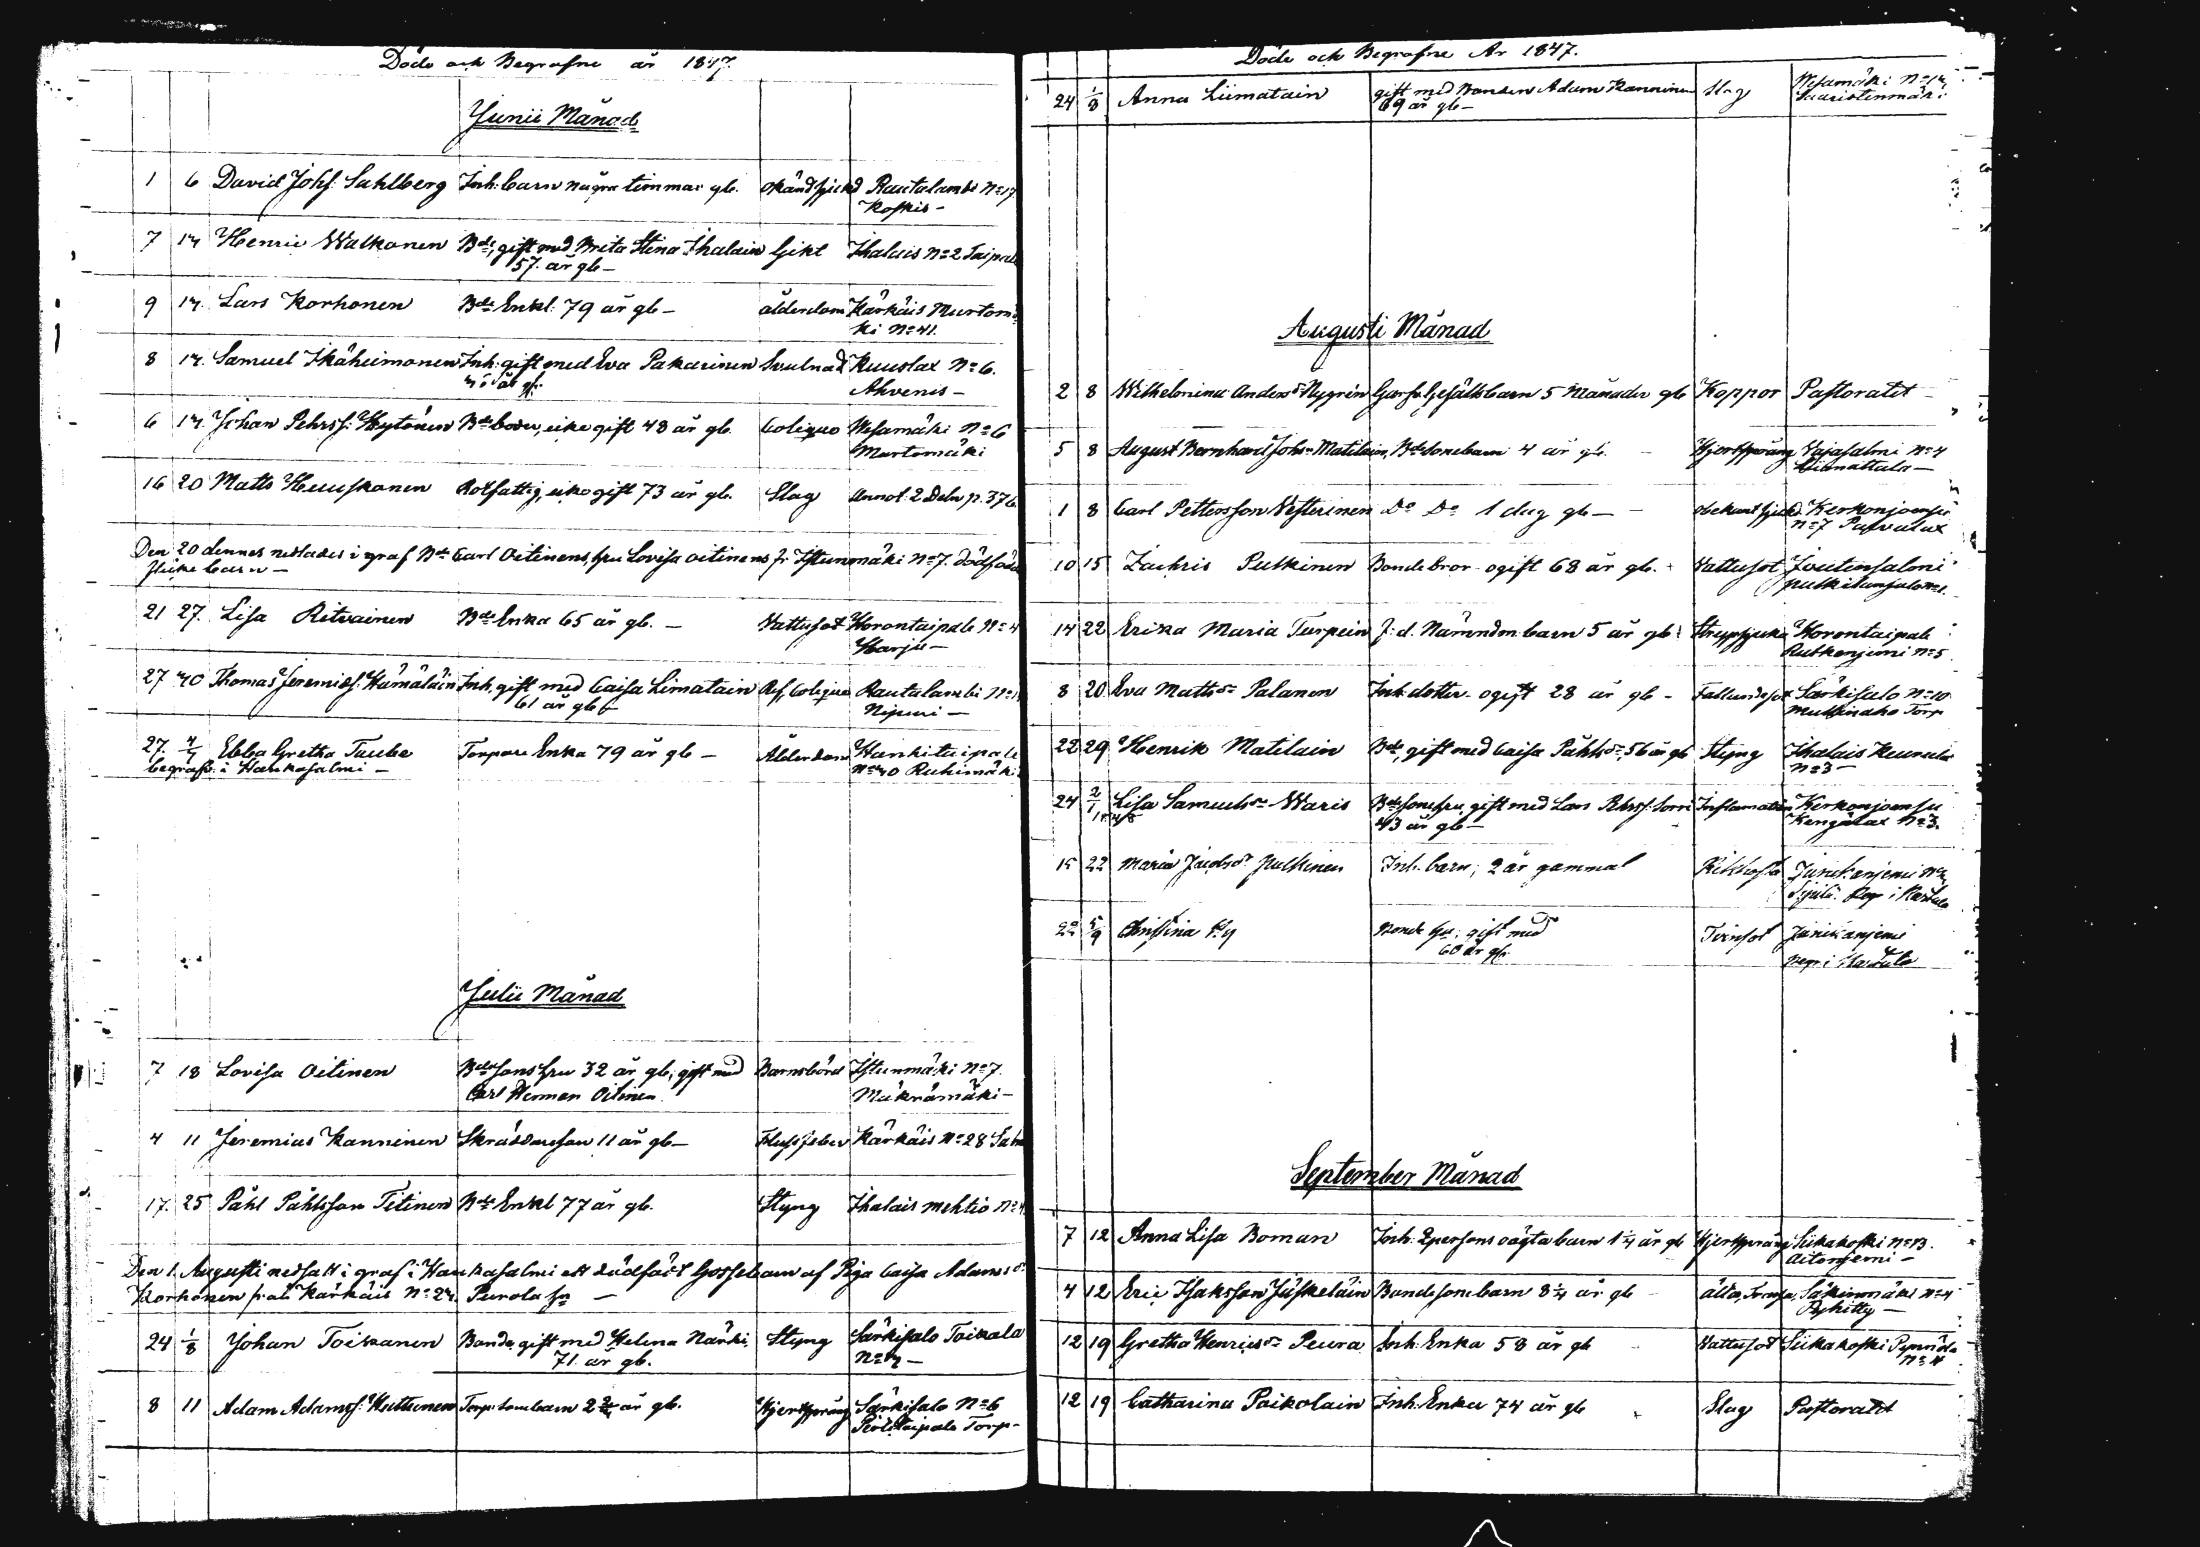 Döde och Begrafne år 1847.
Junii Månad
1 6 David Johs: Sahlberg Inh: barn några timmar gl. okänd sjukd Rautalambi No 17.
Koskis -
7 14 Henric Walkonen Bde, gift med Brita Stina Ihalain Gikt Ihalais No 2 Taipale
57. år gl -
9 14. Lars Korhonen Bde Enkl. 79 år gl - ålderdom Kärkäis Murtomä
ki No 41.
8 14. Samuel Ikäheimonen Inh: gift med Eva Pakarinen Svulnad Kuuslax No 6.
år gl. Ahvenis -
6 14. Johan Pehrss: Hytönen Bde broder, icke gift 48 år gl. Colique Wesamäki No 6
Murtomäki
16 20 Matts Huuskonen Rotfattig, icke gift 73 år gl. Slag annot. 2 Deln p. 376.
Den 20 dennes nedlades i graf Bde Carl Oitinens, hru Lovisa Oitinens fr. Istunmäki No 7. dödfödda
flicke barn -
21 27. Lisa Ritvainen Bde Enka 65 år gl. - Vattusot Horontaipale No 4
Harju -
27 40 Thomas Jeremiss: Hämäläin Inh, gift med Caisa Limatain Ref. Colique Rautalambi No
61 år gl - Nipuri -
27. 4/7 Ebba Gretha Taube Torpare Enka 79 år gl - Ålderdom Hankitaipale
begrafv. i Hankasalmi - No 40 Ruhimäki
Julii Månad
7 18 Lovisa Oitinen Bde sons hru 32 år gl; gift med Barnsbörd Istunmäki No 7.
Carl Herman Oitinen Mäkrämäki -
4 11 Jeremias Kanninen Skräddarson 11 år gl - Kärkäis No 28
17. 25 Påhl Påhlsson Titinen Bde Enkl 77 år gl. Styng Ihalais Mehtio No 4
Den 1. Augusti nedsatt i graf i Hankasalmi ett dödfödt Gossebarn af Piga Caisa Adamsdr
Korhonen från Kärkäis No 24. Purola
24 1/8 Johan Toikanen Bonde, gift med Helena Närhi. Styng Särkisalo Toikala
71. år gl. No 4 -
8 11 Adam Adamss: Huttunen Torp: sonebarn 2 3/4 år gl. Hjertsprång Särkisalo No 6
Torp -
Döde och Begrafne År 1847.
24 1/8 Anna Liimatain gift med Bonden Adam Kanninen Slag Wesamäki No 14
69 år gl - Saaristenmäki
Augusti Månad
2 8 Wilhelmina Andersdr Nygrén Garfv. Gesällsbarn 5 Månader gl Koppor Pastoratet
5 8 August Bernhard Johsn Matilain, Bde sonebarn 4 år gl. - Hjertsprång Vajasalmi No 4
Liimattala -
1 8 Carl Pettersson Vesterinen Do Do 1 dag gl - - obekant sjukd Kerkonjoensu
No 7
10 15 Zachris Pulkinen Bondebror - ogift 68 år gl. Vattusot Joutensalmi
Pulkilansalo No 1.
14 22 Erika Maria Turpein f: d. Nämndm: barn 5 år gl. Strypsjuka Horontaipale
Rutkonjemi No 5
8 20 Eva Mattsdr Palanen Inh dotter - ogift 28 år gl - Fallandesot Särkisalo No 10
Torp
22 29 Henrik Matilain Bde, gift med Caisa Påhlsdr, 56 år gl Styng Ihalais Keurula
No 3 -
24 2/1 Lisa Samuelsdr Waris Bde sonehru, gift med Lars Pehrss: Sorri Inflamation Kerkonjoensu
43 år gl - Kengälax No 3.
15 22 Maria Jacobsdr Pulkinen Inh. barn; 2 år gammal Kikhosta Junikanjemi No
Begr i
22 5/9 Christina Bonde hu: gift med Tvinsot Junikanjemi
60 år gl. Begr i
September Månad
7 12 Anna Lisa Boman Inh. Epersons oägta barn 1 1/4 år gl Hjertsprång Siikakoski No 13.
4 12 Eric Isaksson Jäskeläin Bondesonebarn 8 1/4 år gl - ältan, Säkinmäki No 4
Pyhitty -
12 19 Gretha Henricsdr Peura Inh: Enka 58 år gl - Vattusot Siikakoski Pynnölä
No 4
12 19 Catharina Paikolain Inh. Enka 74 år gl Slag Pastoratet